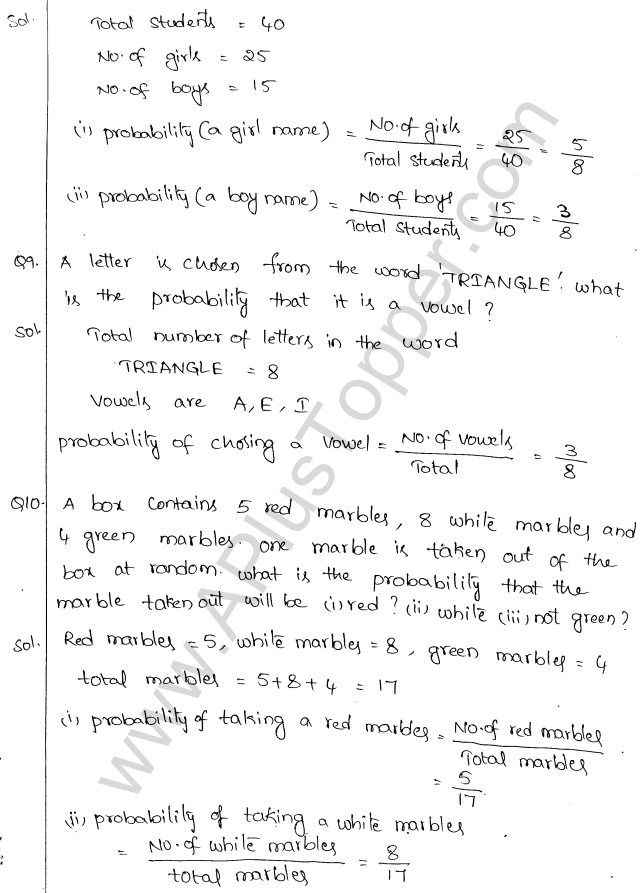 Sol. Total students = 40
No. of girls = 25
No. of boys = 15
(i) probability (a girl name) = No. of girls / Total students = 25/40 = 5/8
(ii) probability (a boy name) = No. of boys / Total students = 15/40 = 3/8
Q9. A letter is chosen from the word 'TRIANGLE'. what
is the probability that it is a vowel?
Sol. Total number of letters in the word
TRIANGLE = 8
Vowels are A, E, I
probability of chosing a vowel = No. of vowels / Total = 3/8
Q10. A box contains 5 red marbles, 8 white marbles and
4 green marbles. one marble is taken out of the
box at random. what is the probability that the
marble taken out will be (i) red? (ii) white (iii) not green?
Sol. Red marbles = 5, white marbles = 8, green marbles = 4
total marbles = 5+8+4 = 17
(i) probability of taking a red marbles = No. of red marbles / Total marbles
= 5/17
(ii) probability of taking a white marbles
= No. of white marbles / total marbles = 8/17
www.APlusTopper.com